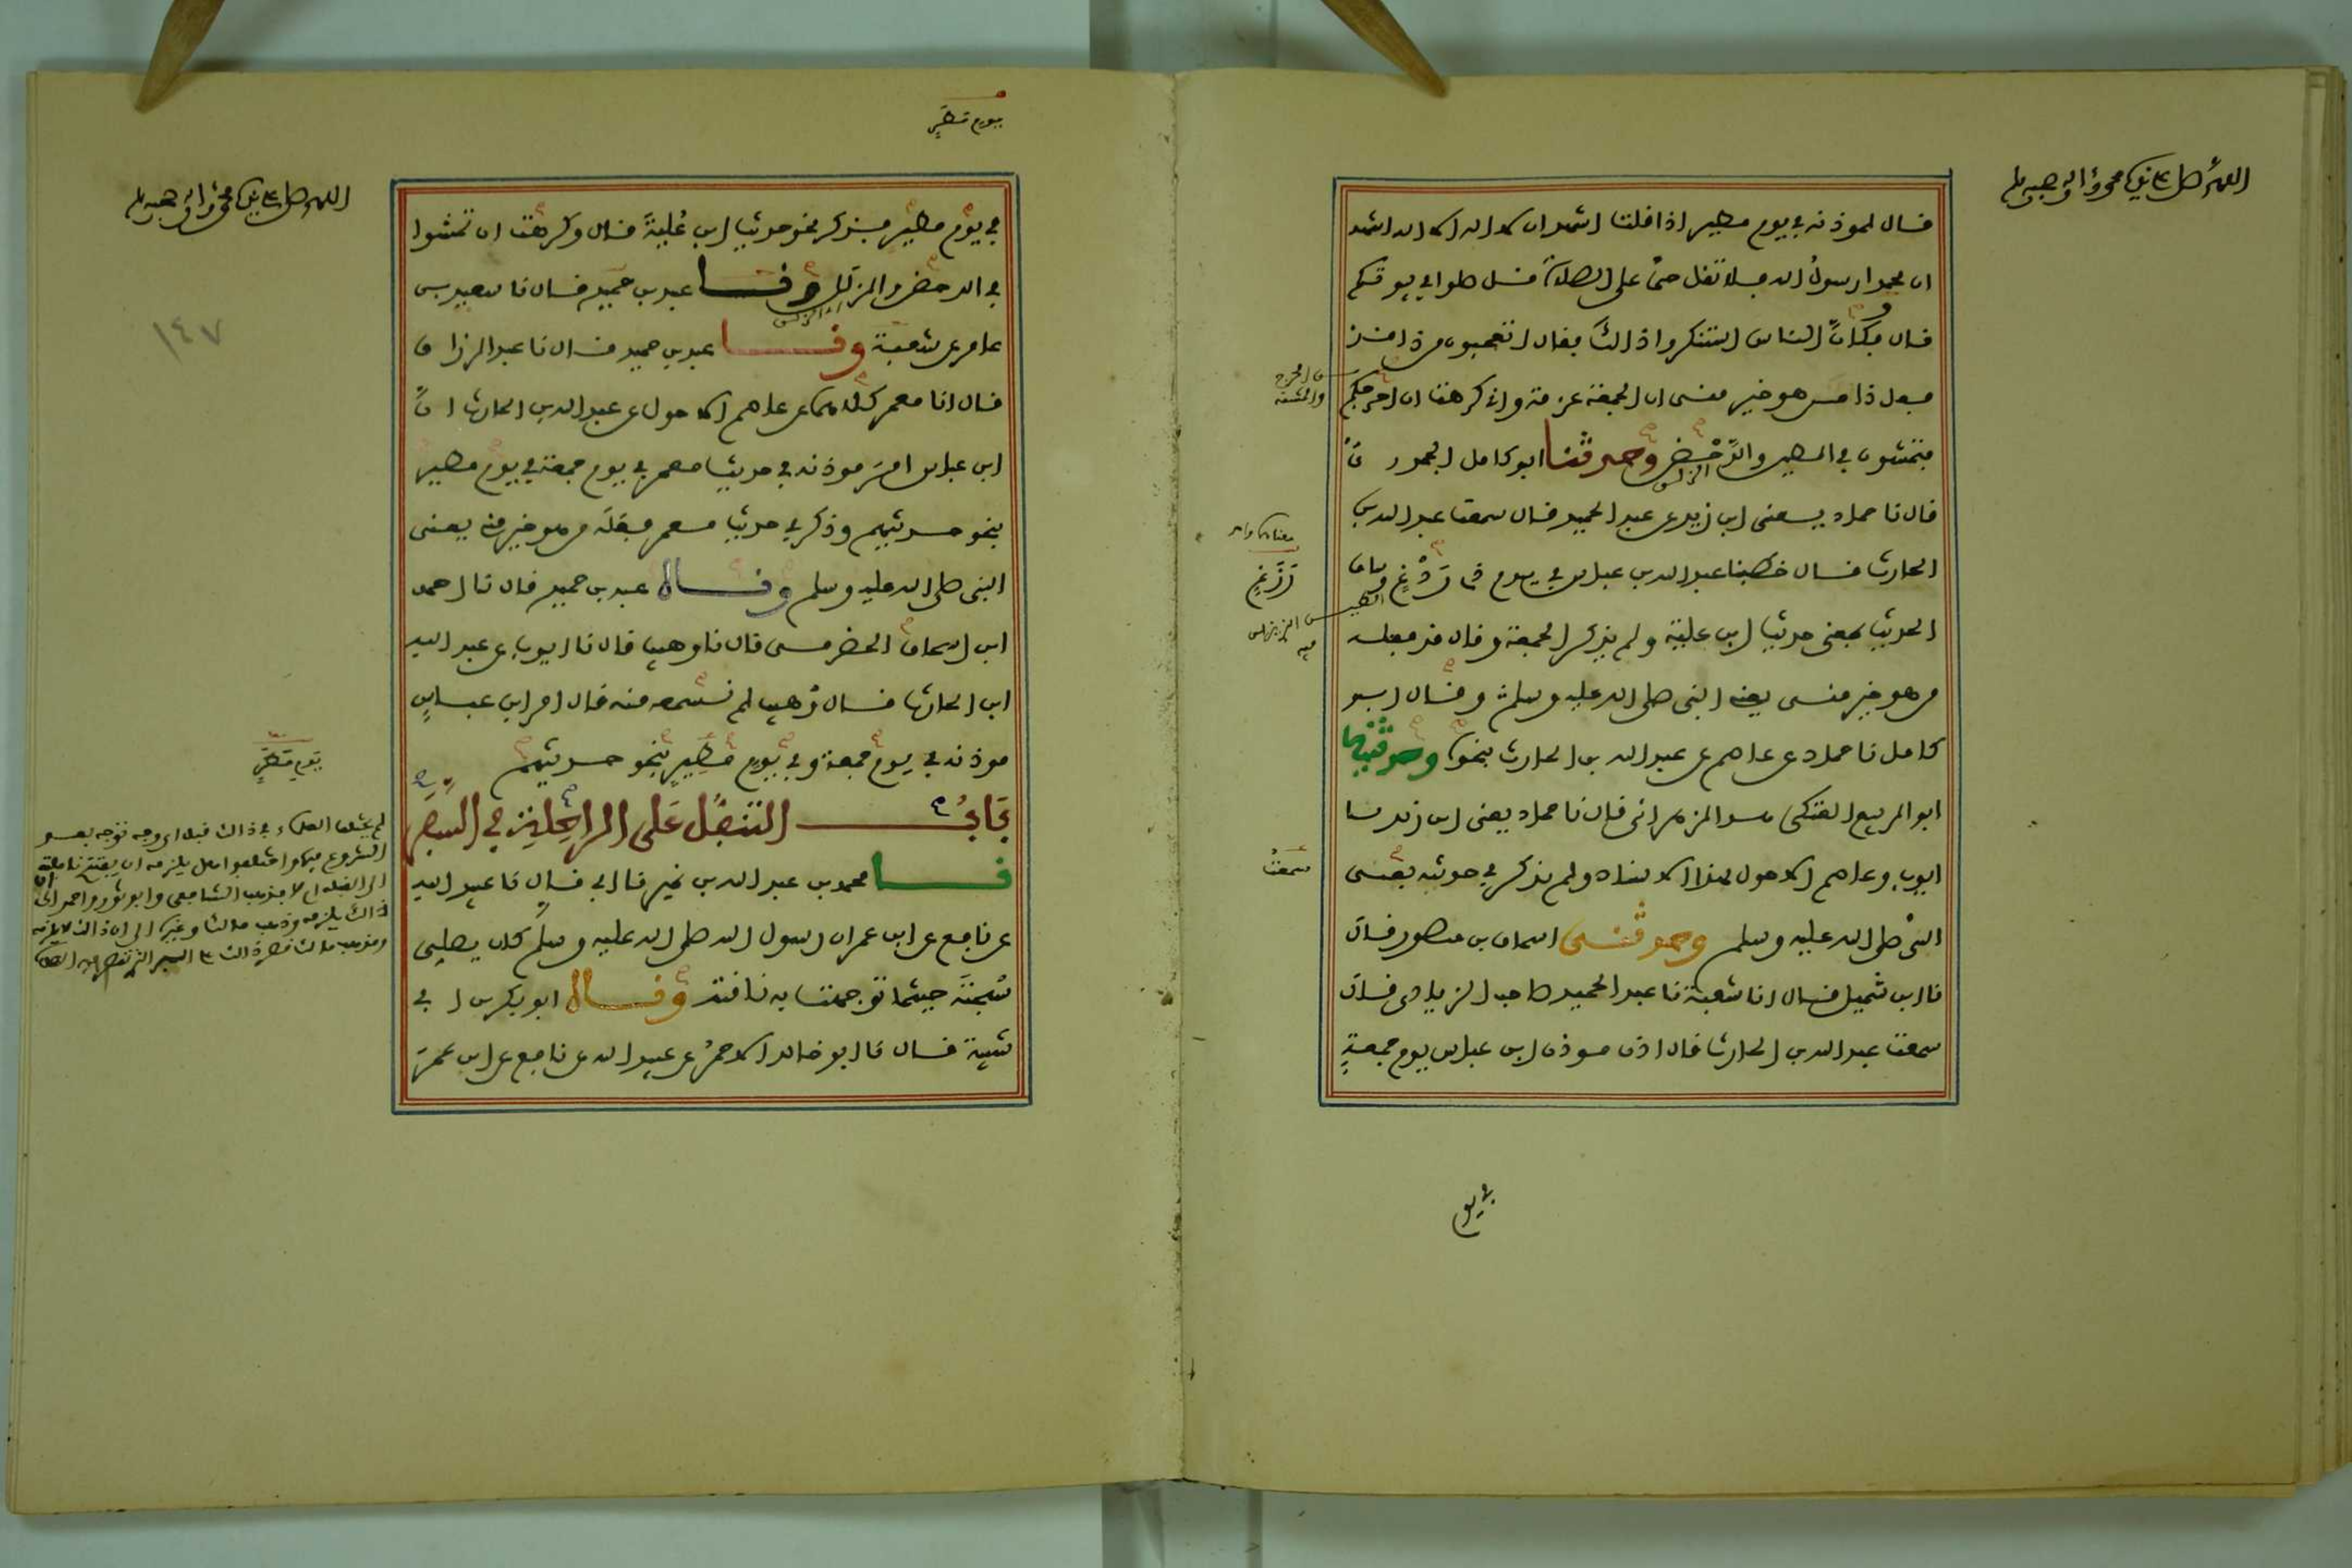 اللهم صل على نبيك محمد واله وصحبه وسلم
قال لموذنه في يوم مطير اذا قلت اشهد ان لا اله الا الله اشهد
ان محمدا رسول الله فلا تقل حي على الصلاة قل صلوا في بيوتكم
قال وكان الناس استنكروا ذاك فقال اتعجبون من ذا قد
فعل ذا من هو خير مني ان الجمعة عزمة واني كرهت ان احرجكم
من الحرج والمشقة
فتمشون في الطين والدحض وحدثنا ابو كامل الجحدري
الزلق
قال نا حماد يعني ابن زيد عن عبد الحميد قال سمعت عبد الله بن
معناهما واحد
الحارث قال خطبنا عبد الله بن عباس في يوم ذي ردغ وساق
رزغ
الحديث بمعنى حديث ابن علية ولم يذكر الجمعة وقال قد فعله
من هو خير مني يعني النبي صلى الله عليه وسلم وقال ابو
كامل نا حماد عن عاصم عن عبد الله بن الحارث بنحوه وحدثنيه
ابو الربيع العتكي هو الزهراني قال نا حماد يعني ابن زيد نا
ايوب وعاصم الاحول بهذا الاسناد ولم يذكر في حديثه يعني
سمعت
النبي صلى الله عليه وسلم وحدثني اسحاق بن منصور قال
نا ابن شميل قال انا شعبة نا عبد الحميد صاحب الزيادي قال
سمعت عبد الله بن الحارث قال اذن موذن ابن عباس يوم جمعة
في يوم
يوم مطير
اللهم صل على نبيك محمد واله وصحبه وسلم
في يوم مطير فذكر نحو حديث ابن علية قال وكرهت ان تمشوا
في الدحض والزلل وقا عبد بن حميد قال نا سعيد بن
١٤٧
عامر عن شعبة وقا عبد بن حميد قال نا عبد الرزاق
قال انا معمر كلاهما عن عاصم الاحول عن عبد الله بن الحارث ان
ابن عباس امر موذنه في حديث معمر في يوم جمعة في يوم مطير
بنحو حديثهم وذكر في حديث معمر فعله من هو خير مني يعني
النبي صلى الله عليه وسلم وقاله عبد بن حميد قال نا احمد
ابن اسحاق الحضرمي قال نا وهيب قال نا ايوب عن عبد الله
ابن الحارث قال وهيب لم نسمعه منه قال امر ابن عباس
موذنه في يوم جمعة وفي يوم مطير بنحو حديثهم
يوم مطير
باب التنفل على الراحلة في السفر
قا محمد بن عبد الله بن نمير نا ابي قال نا عبيد الله
عن نافع عن ابن عمر ان رسول الله صلى الله عليه وسلم كان يصلي
سبحته حيثما توجهت به ناقته وقاله ابو بكر بن ابي
شيبة قال نا ابو خالد الاحمر عن عبيد الله عن نافع عن ابن عمر